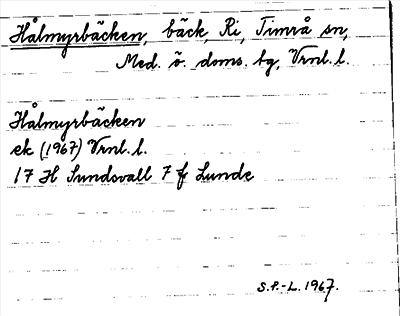 Hålmyrbäcken, bäck, Ri, Timrå sn,
Med. ö. doms. tg, Vrnl. l.
Hålmyrbäcken
ek (1967) Vrnl. l.
17 H Sundsvall 7 f Lunde
S.P.-L. 1967.